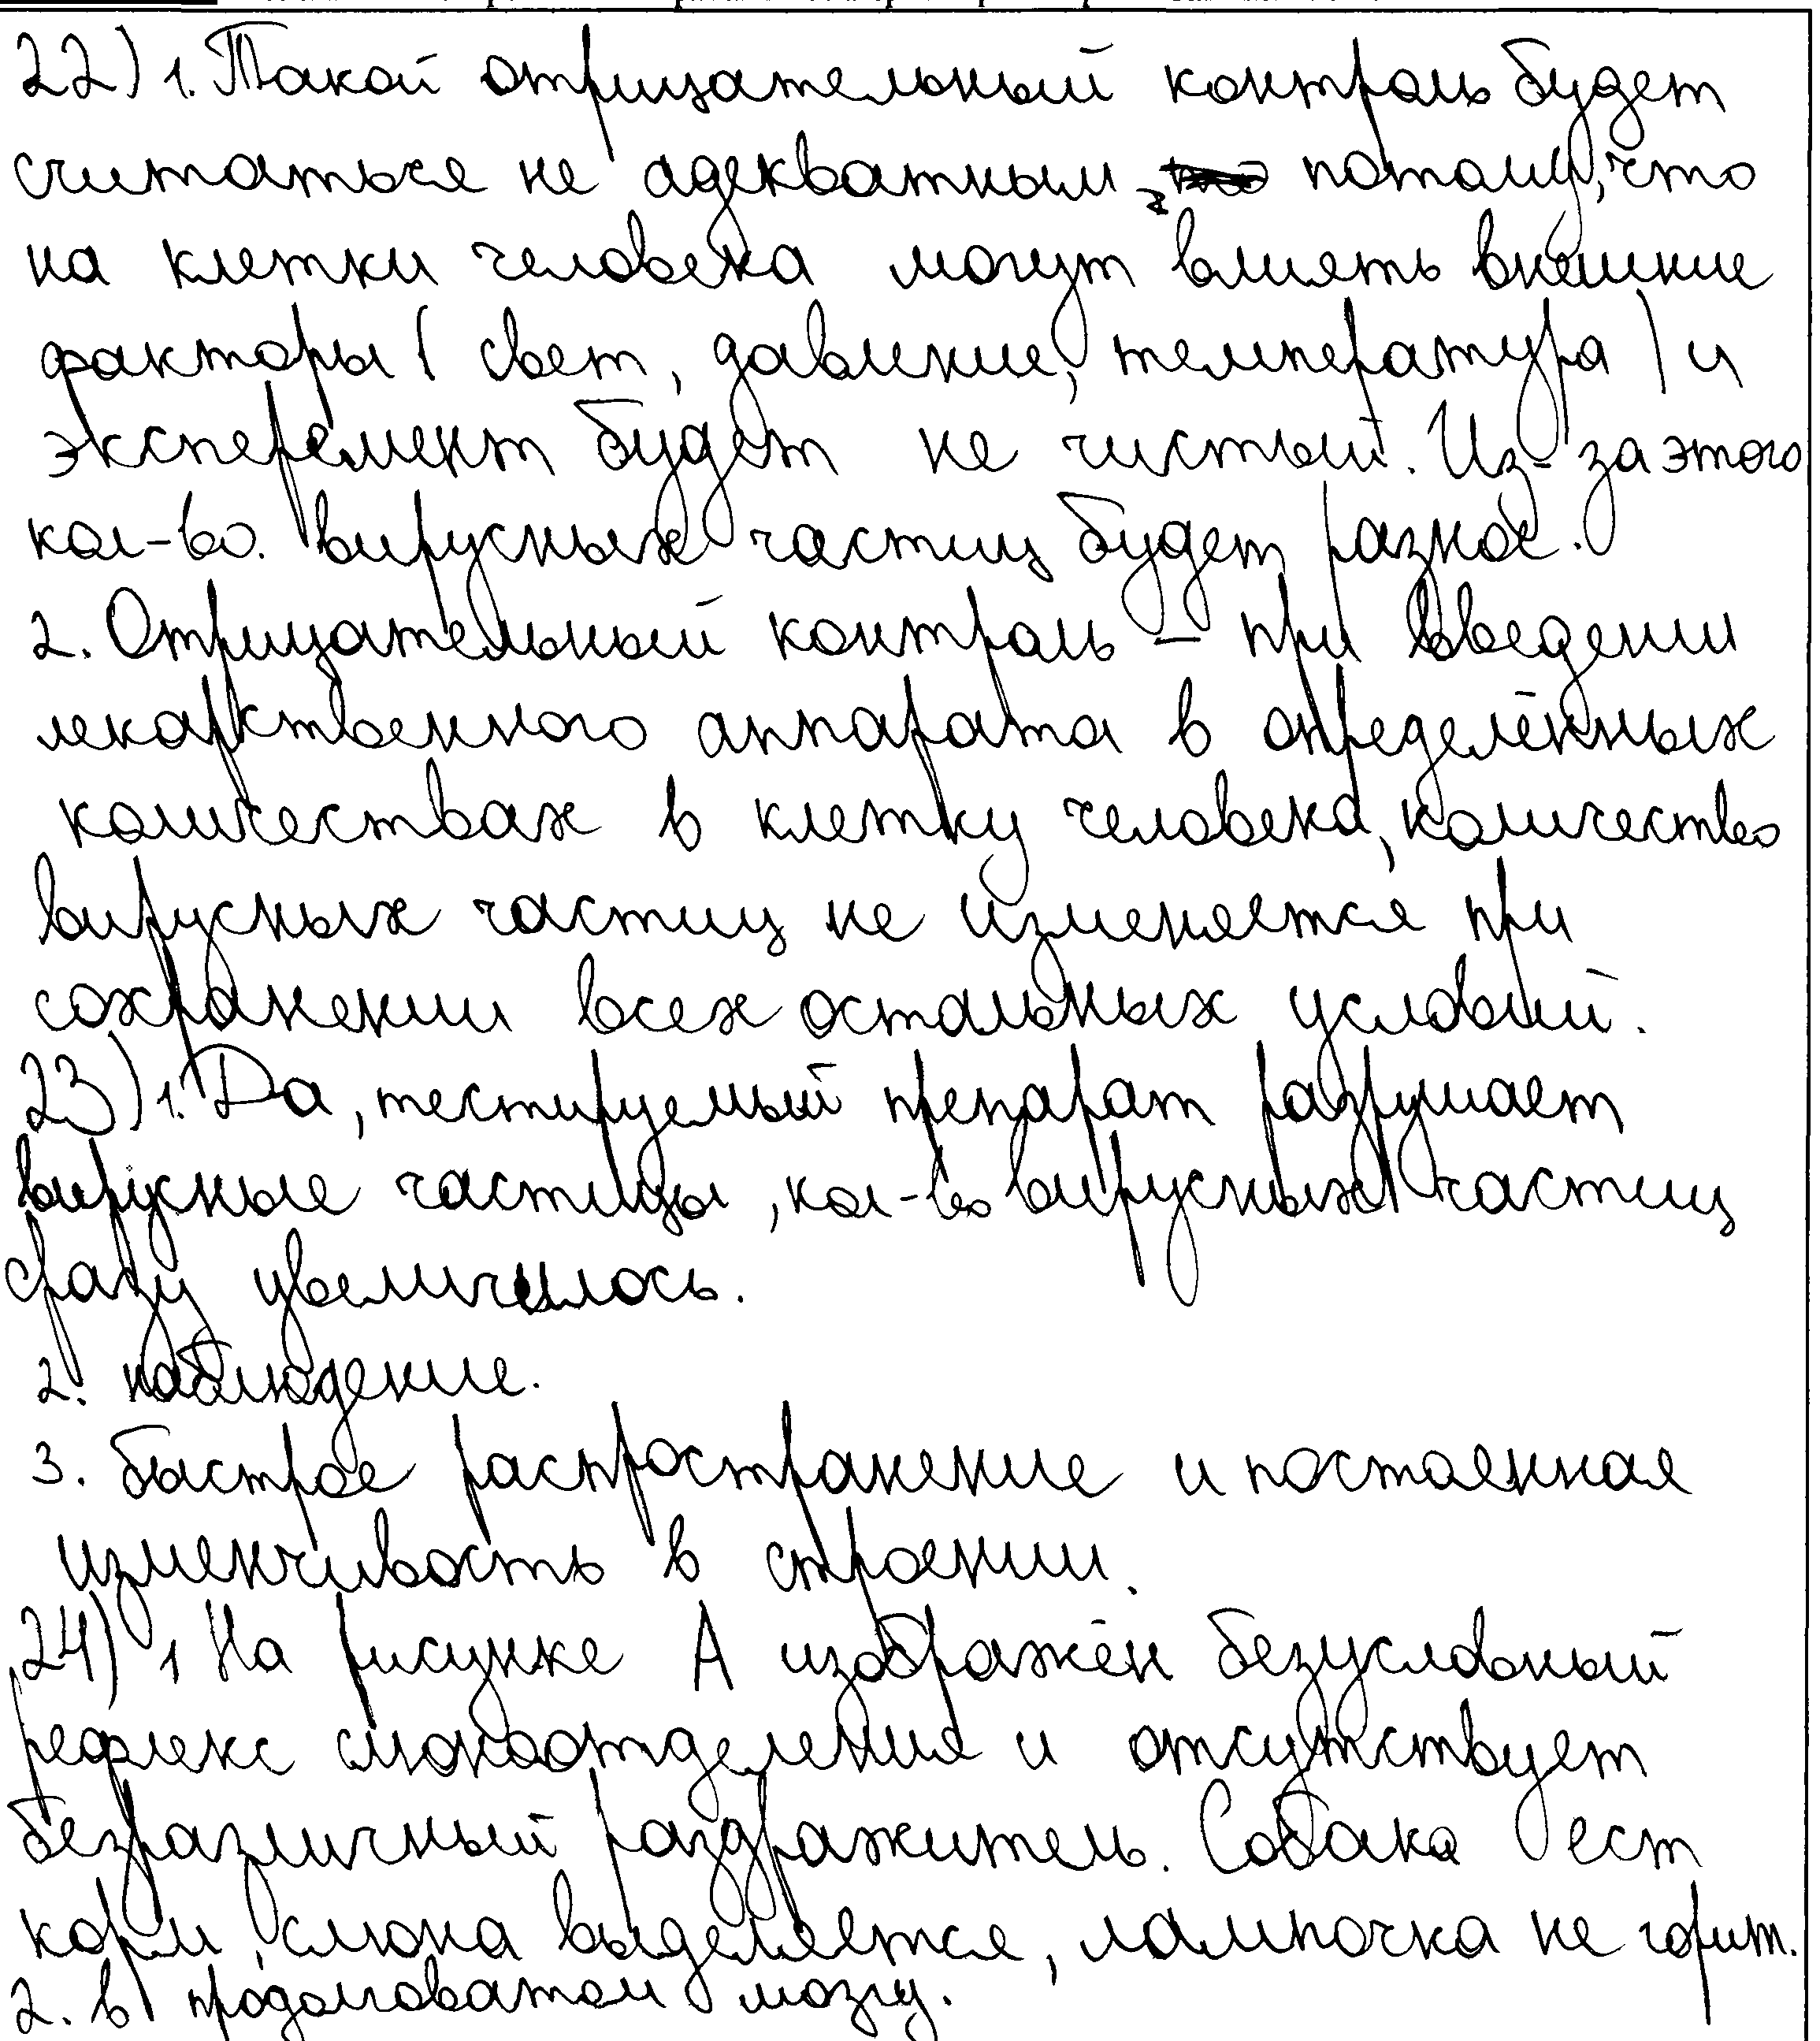 22) 1. Такой отрицательный контроль будет
считаться не адекватным, потому, что
на клетки человека могут влиять внешние
факторы ( свет, давление, температура ) и
эксперемент будет не чистый. Из-за этого
кол-во. вирусных частиц будет разное.
2. Отрицательный контроль – при введении
лекарственного аппарата в определённых
количествах в клетку человека, количество
вирусных частиц не изменяется при
сохранении всех остальных условий.
23) 1. Да, тестируемый препарат разрушает
вирусные частицы, кол-во вирусных частиц
сразу увеличилось.
2. наблюдение.
3. быстрое распространение и постоянная
изменчивость в строении.
24) 1 На рисунке А изображён безусловный
рефлекс слюноотделения и отсутствует
безразличный раздражитель. Собака ест
корм, слюна выделяется, лампочка не горит.
2. в продолговатом мозгу.